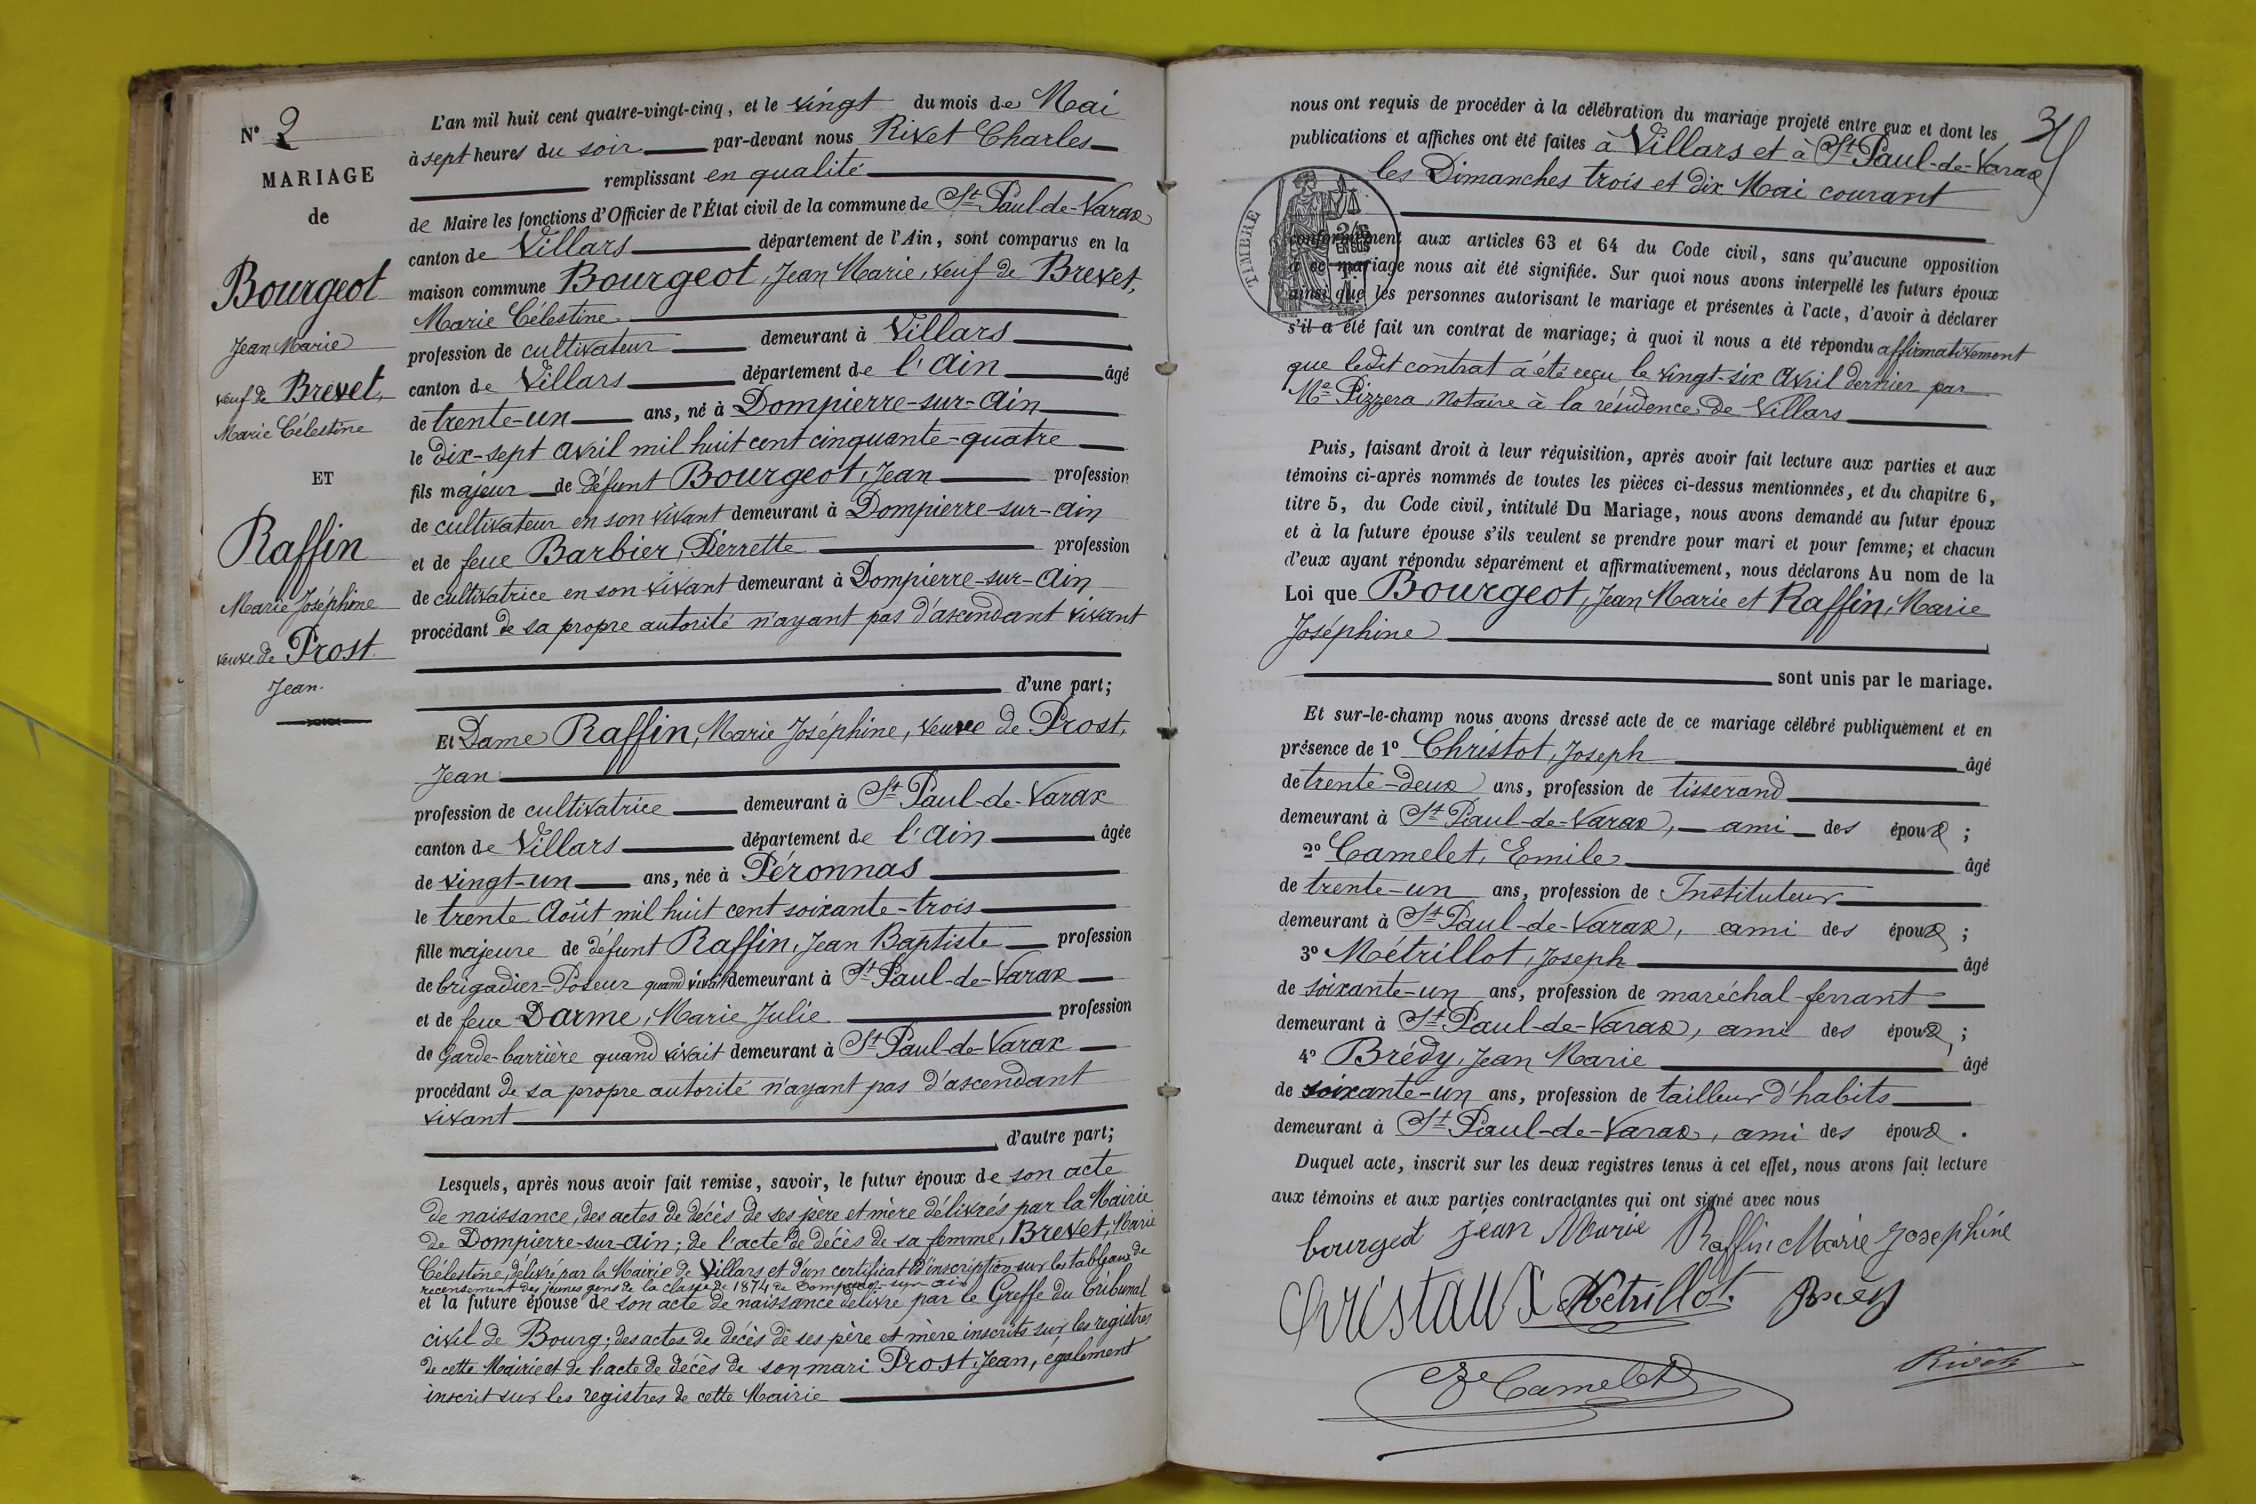 N° 2
MARIAGE
de
Bourgeot
Jean Marie
veuf de Brevet,
Marie Célestine
ET
Raffin
Marie Joséphine
veuve de Prost
Jean.
L'an mil huit cent quatre-vingt-cinq, et le vingt du mois de Mai
à sept heures du soir par-devant nous Rivet Charles
remplissant en qualité
de Maire les fonctions d'Officier de l'État civil de la commune de St Paul-de-Varax
canton de Villars département de l'Ain, sont comparus en la
maison commune Bourgeot, Jean Marie, veuf de Brevet,
Marie Célestine
profession de cultivateur demeurant à Villars
canton de Villars département de l'Ain âgé
de trente-un ans, né à Dompierre-sur-Ain
le dix-sept avril mil huit cent cinquante-quatre
fils majeur de défunt Bourgeot, Jean profession
de cultivateur en son vivant demeurant à Dompierre-sur-Ain
et de feue Barbier, Pierrette profession
de cultivatrice en son vivant demeurant à Dompierre-sur-Ain
procédant de sa propre autorité n'ayant pas d'ascendant vivant
d'une part;
Et Dame Raffin, Marie Joséphine, veuve de Prost,
Jean
profession de cultivatrice demeurant à St Paul-de-Varax
canton de Villars département de l'Ain âgée
de vingt-un ans, née à Péronnas
le trente Août mil huit cent soixante-trois
fille majeure de défunt Raffin, Jean Baptiste profession
de brigadier-Poseur quand vivait demeurant à St Paul-de-Varax
et de feue Darme, Marie Julie profession
de Garde-barrière quand vivait demeurant à St Paul-de-Varax
procédant de sa propre autorité n'ayant pas d'ascendant
vivant
d'autre part;
Lesquels, après nous avoir fait remise, savoir, le futur époux de son acte
de naissance, des actes de décès de ses père et mère délivrés par la Mairie
de Dompierre-sur-Ain; de l'acte de décès de sa femme, Brevet, Marie
Célestine, délivré par la Mairie de Villars et d'un certificat d'inscription sur les tableaux de
recensement des jeunes gens de la classe de 1874 de Dompierre-sur-Ain
et la future épouse de son acte de naissance délivré par le Greffe du Tribunal
civil de Bourg; des actes de décès de ses père et mère inscrits sur les registres
de cette Mairie et de l'acte de décès de son mari Prost, Jean, également
inscrit sur les registres de cette Mairie
nous ont requis de procéder à la célébration du mariage projeté entre eux et dont les
publications et affiches ont été faites à Villars et à St Paul-de-Varax
les Dimanches trois et dix Mai courant
TIMBRE
2/10
EN SUS
conformément aux articles 63 et 64 du Code civil, sans qu'aucune opposition
à ce mariage nous ait été signifiée. Sur quoi nous avons interpellé les futurs époux
ainsi que les personnes autorisant le mariage et présentes à l'acte, d'avoir à déclarer
s'il a été fait un contrat de mariage; à quoi il nous a été répondu affirmativement
que ledit contrat a été reçu le vingt-six Avril dernier par
Me Pizzera, Notaire à la résidence de Villars
Puis, faisant droit à leur réquisition, après avoir fait lecture aux parties et aux
témoins ci-après nommés de toutes les pièces ci-dessus mentionnées, et du chapitre 6,
titre 5, du Code civil, intitulé Du Mariage, nous avons demandé au futur époux
et à la future épouse s'ils veulent se prendre pour mari et pour femme; et chacun
d'eux ayant répondu séparément et affirmativement, nous déclarons Au nom de la
Loi que Bourgeot, Jean Marie et Raffin, Marie
Joséphine
sont unis par le mariage.
Et sur-le-champ nous avons dressé acte de ce mariage célébré publiquement et en
présence de 1° Christot, Joseph âgé
de trente-deux ans, profession de tisserand
demeurant à St Paul-de-Varax, ami des époux;
2° Camelet, Emile âgé
de trente-un ans, profession de Instituteur
demeurant à St Paul-de-Varax, ami des époux;
3° Métrillot, Joseph âgé
de soixante-un ans, profession de maréchal-ferrant
demeurant à St Paul-de-Varax, ami des époux;
4° Brédy, Jean Marie âgé
de soixante-un ans, profession de tailleur d'habits
demeurant à St Paul-de-Varax, ami des époux.
Duquel acte, inscrit sur les deux registres tenus à cet effet, nous avons fait lecture
aux témoins et aux parties contractantes qui ont signé avec nous
bourgeot jean Marie Raffin Marie Josephine
Métrillot
Camelet
Rivet